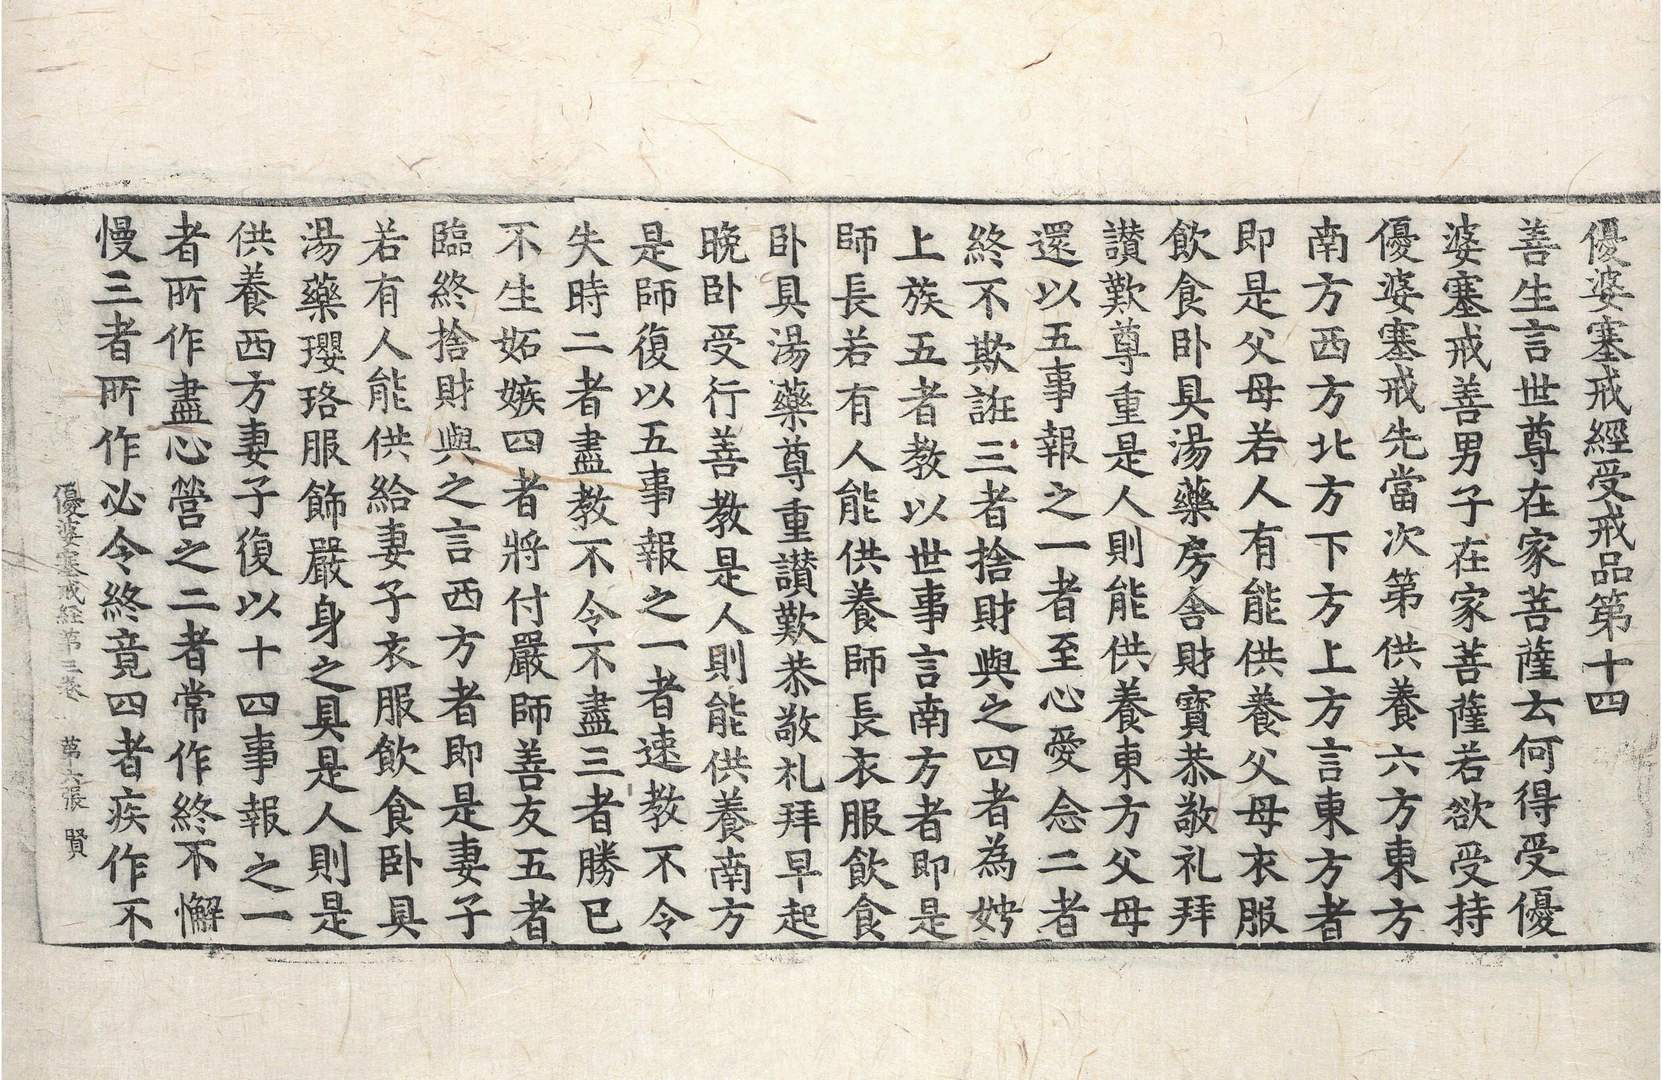 優婆塞戒經受戒品第十四
善生言世尊在家菩薩云何得受優
婆塞戒善男子在家菩薩若欲受持
優婆塞戒先當次第供養六方東方
南方西方北方下方上方言東方者
即是父母若人有能供養父母衣服
飲食卧具湯藥房舍財寶恭敬礼拜
讃歎尊重是人則能供養東方父母
還以五事報之一者至心愛念二者
終不欺誑三者捨財與之四者為娉
上族五者教以世事言南方者即是
師長若有人能供養師長衣服飲食
卧具湯藥尊重讃歎恭敬礼拜早起
晚卧受行善教是人則能供養南方
是師復以五事報之一者速教不令
失時二者盡教不令不盡三者勝已
不生妬嫉四者將付嚴師善友五者
臨終捨財與之言西方者即是妻子
若有人能供給妻子衣服飲食卧具
湯藥瓔珞服飾嚴身之具是人則是
供養西方妻子復以十四事報之一
者所作盡心營之二者常作終不懈
慢三者所作必令終竟四者疾作不
優婆塞戒經第三卷 第六張 賢